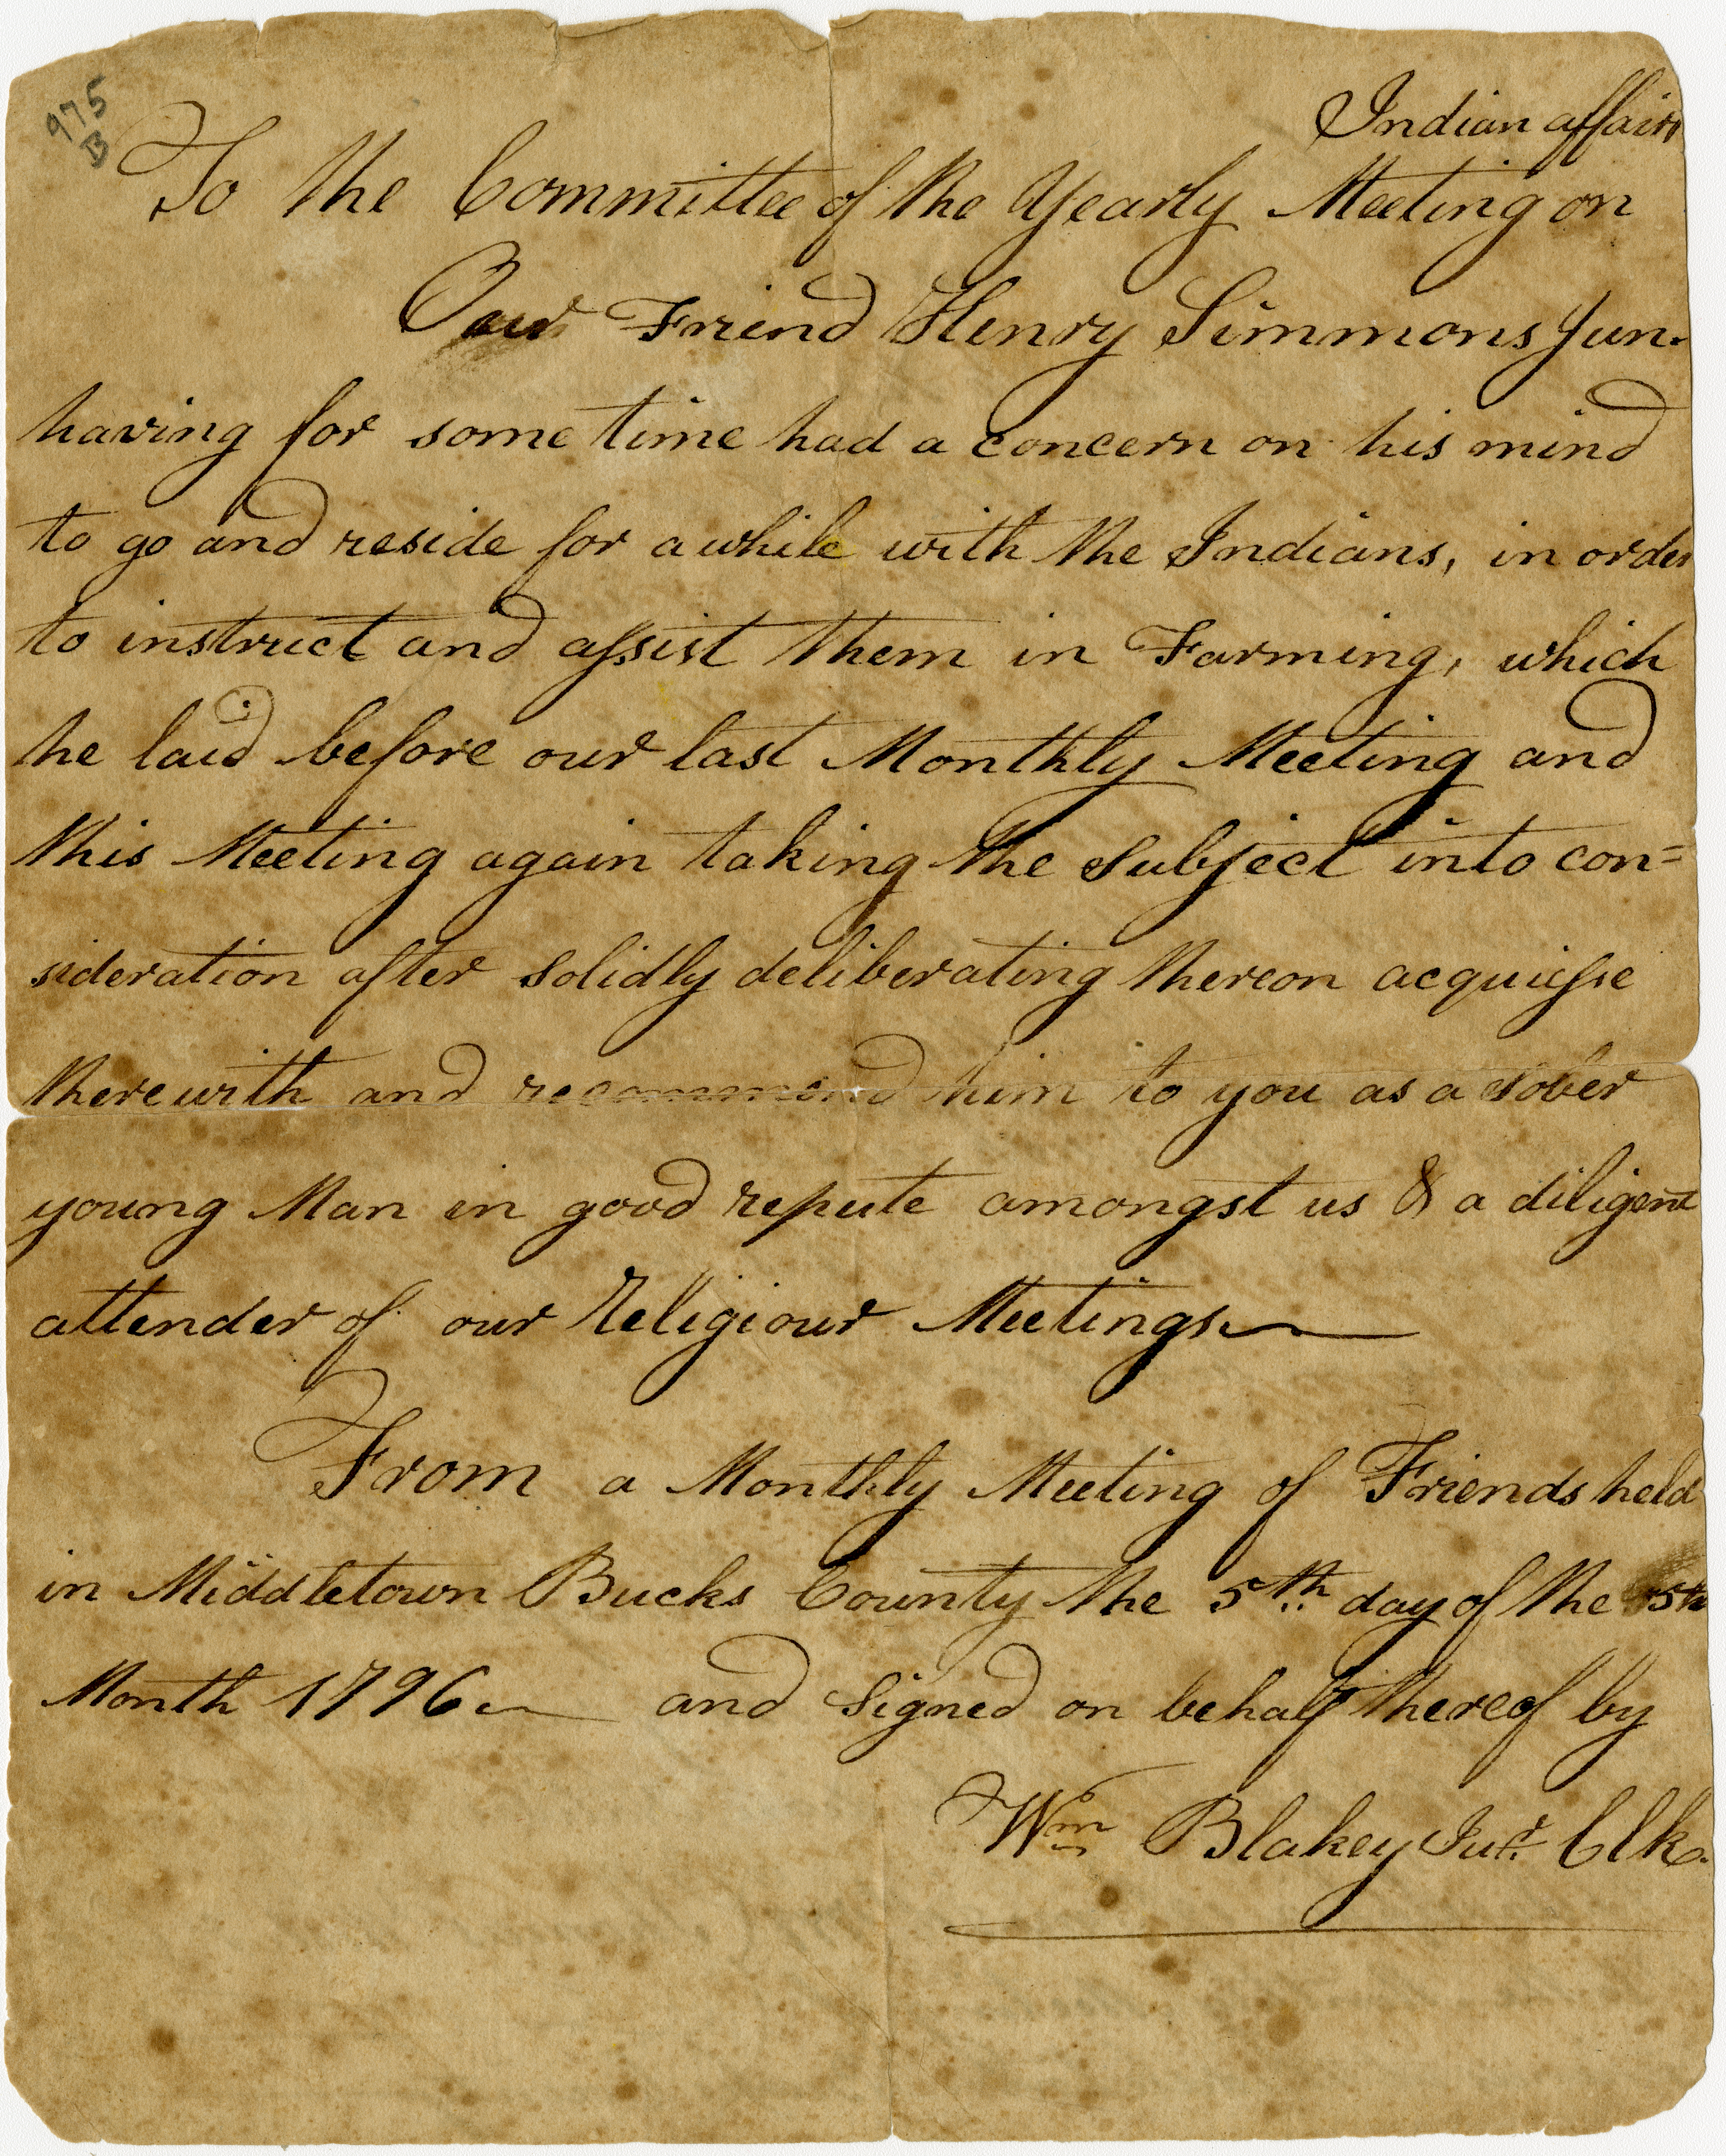 975
B
Indian affairs
To the Committee of the Yearly Meeting on
Our Friend Henry Simmons Jun.
having for some time had a concern on his mind
to go and reside for a while with the Indians, in order
to instruct and assist them in Farming, which
he laid before our last Monthly Meeting and
this Meeting again taking the Subject into con=
sideration after solidly deliberating thereon acquiesse
therewith and recommend him to you as a sober
young Man in good repute amongst us & a diligent
attender of our Religiour Meetings
From a Monthly Meeting of Friends held
in Middletown Bucks County the 5th day of the 5th
Month 1796 and Signed on behalf thereof by
Wm Blakey Junr Clk.